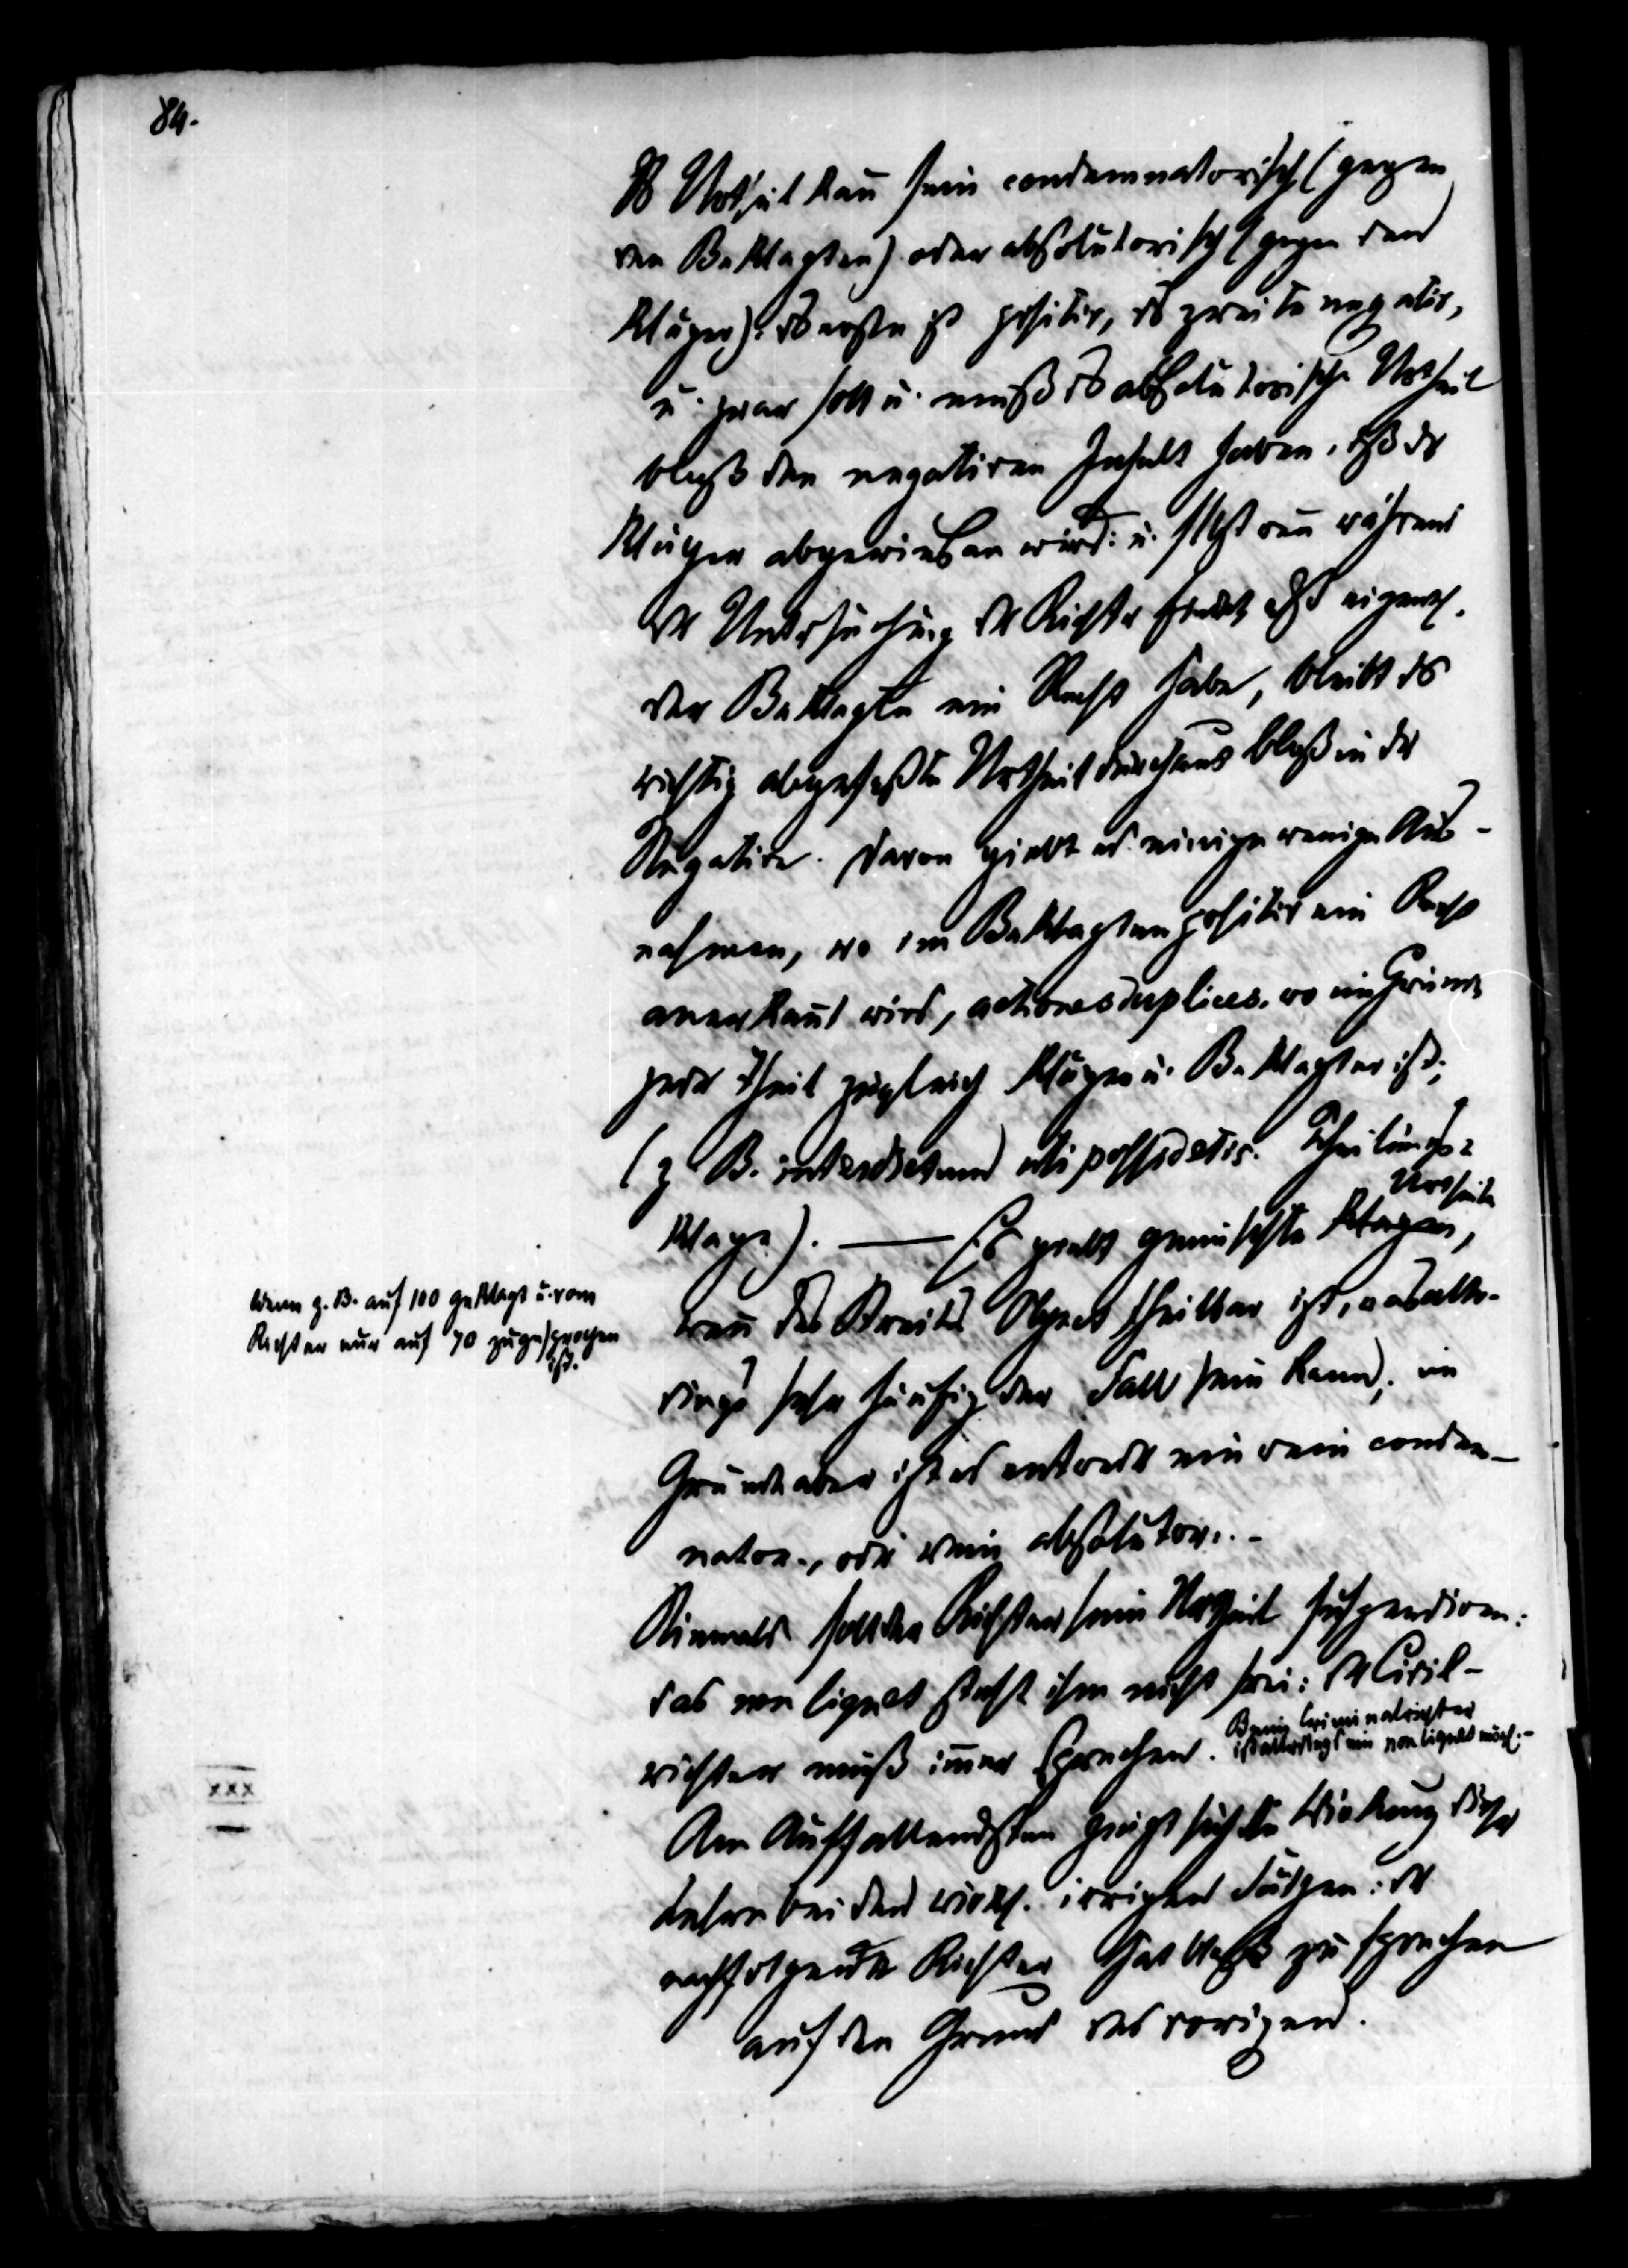 84.
Ds Urtheil kan̄ sein condemnatorisch (gegen
den Beklagten) oder absolutorisch (gegen den
Kläger): ds erste ist positiv, ds zweite negativ,
u. zwar soll u. muß ds absolutorische Urtheil
bloß den negativen Inhalt haben, dß dr
Kläger abgewiesen wird: u. selbst wen̄ während
dr Untersuchung dr Richter findet dß eigentl.
der Beklagte ein Recht habe, bleibt ds
richtig abgefaßte Urtheil durchaus bloß in dr
Negative. Davon giebt es einige wenige Aus-
nahmen, wo dem Beklagten positiv ein Recht
anerkan̄t wird, actiones duplices, wo im Grunde
jeder Theil zugleich Kläger u. Beklagter ist;
(z. B. interdictum uti possidetis. Theilungs-
klage). — Es giebt gemischte Klagen,
Urtheile
wen̄ des Streites Object theilbar ist, was aller-
dings sehr häufig der Fall sein kann; im
Grunde aber ist es entweder ein rein condem-
nator., oder rein absolutor. -
Wenn z. B. auf 100 geklagt u. vom
Richter nur auf 70 zugesprochen
ist.
Niemals soll der Richter sein Urtheil suspendiren:
das non liquet steht ihm nicht frei: dr Civil-
richter muß im̄er sprechen. Beim Criminalrichter
ist allerdings ein non liquet mögl. -
xxx
Am Auffallendsten zeigt sich die Wirkung dieser
Lehre bei den wirkl. irrigen Sätzen: dr
nachfolgende Richter hat bloß zu sprechen
auf den Grund des vorigen.